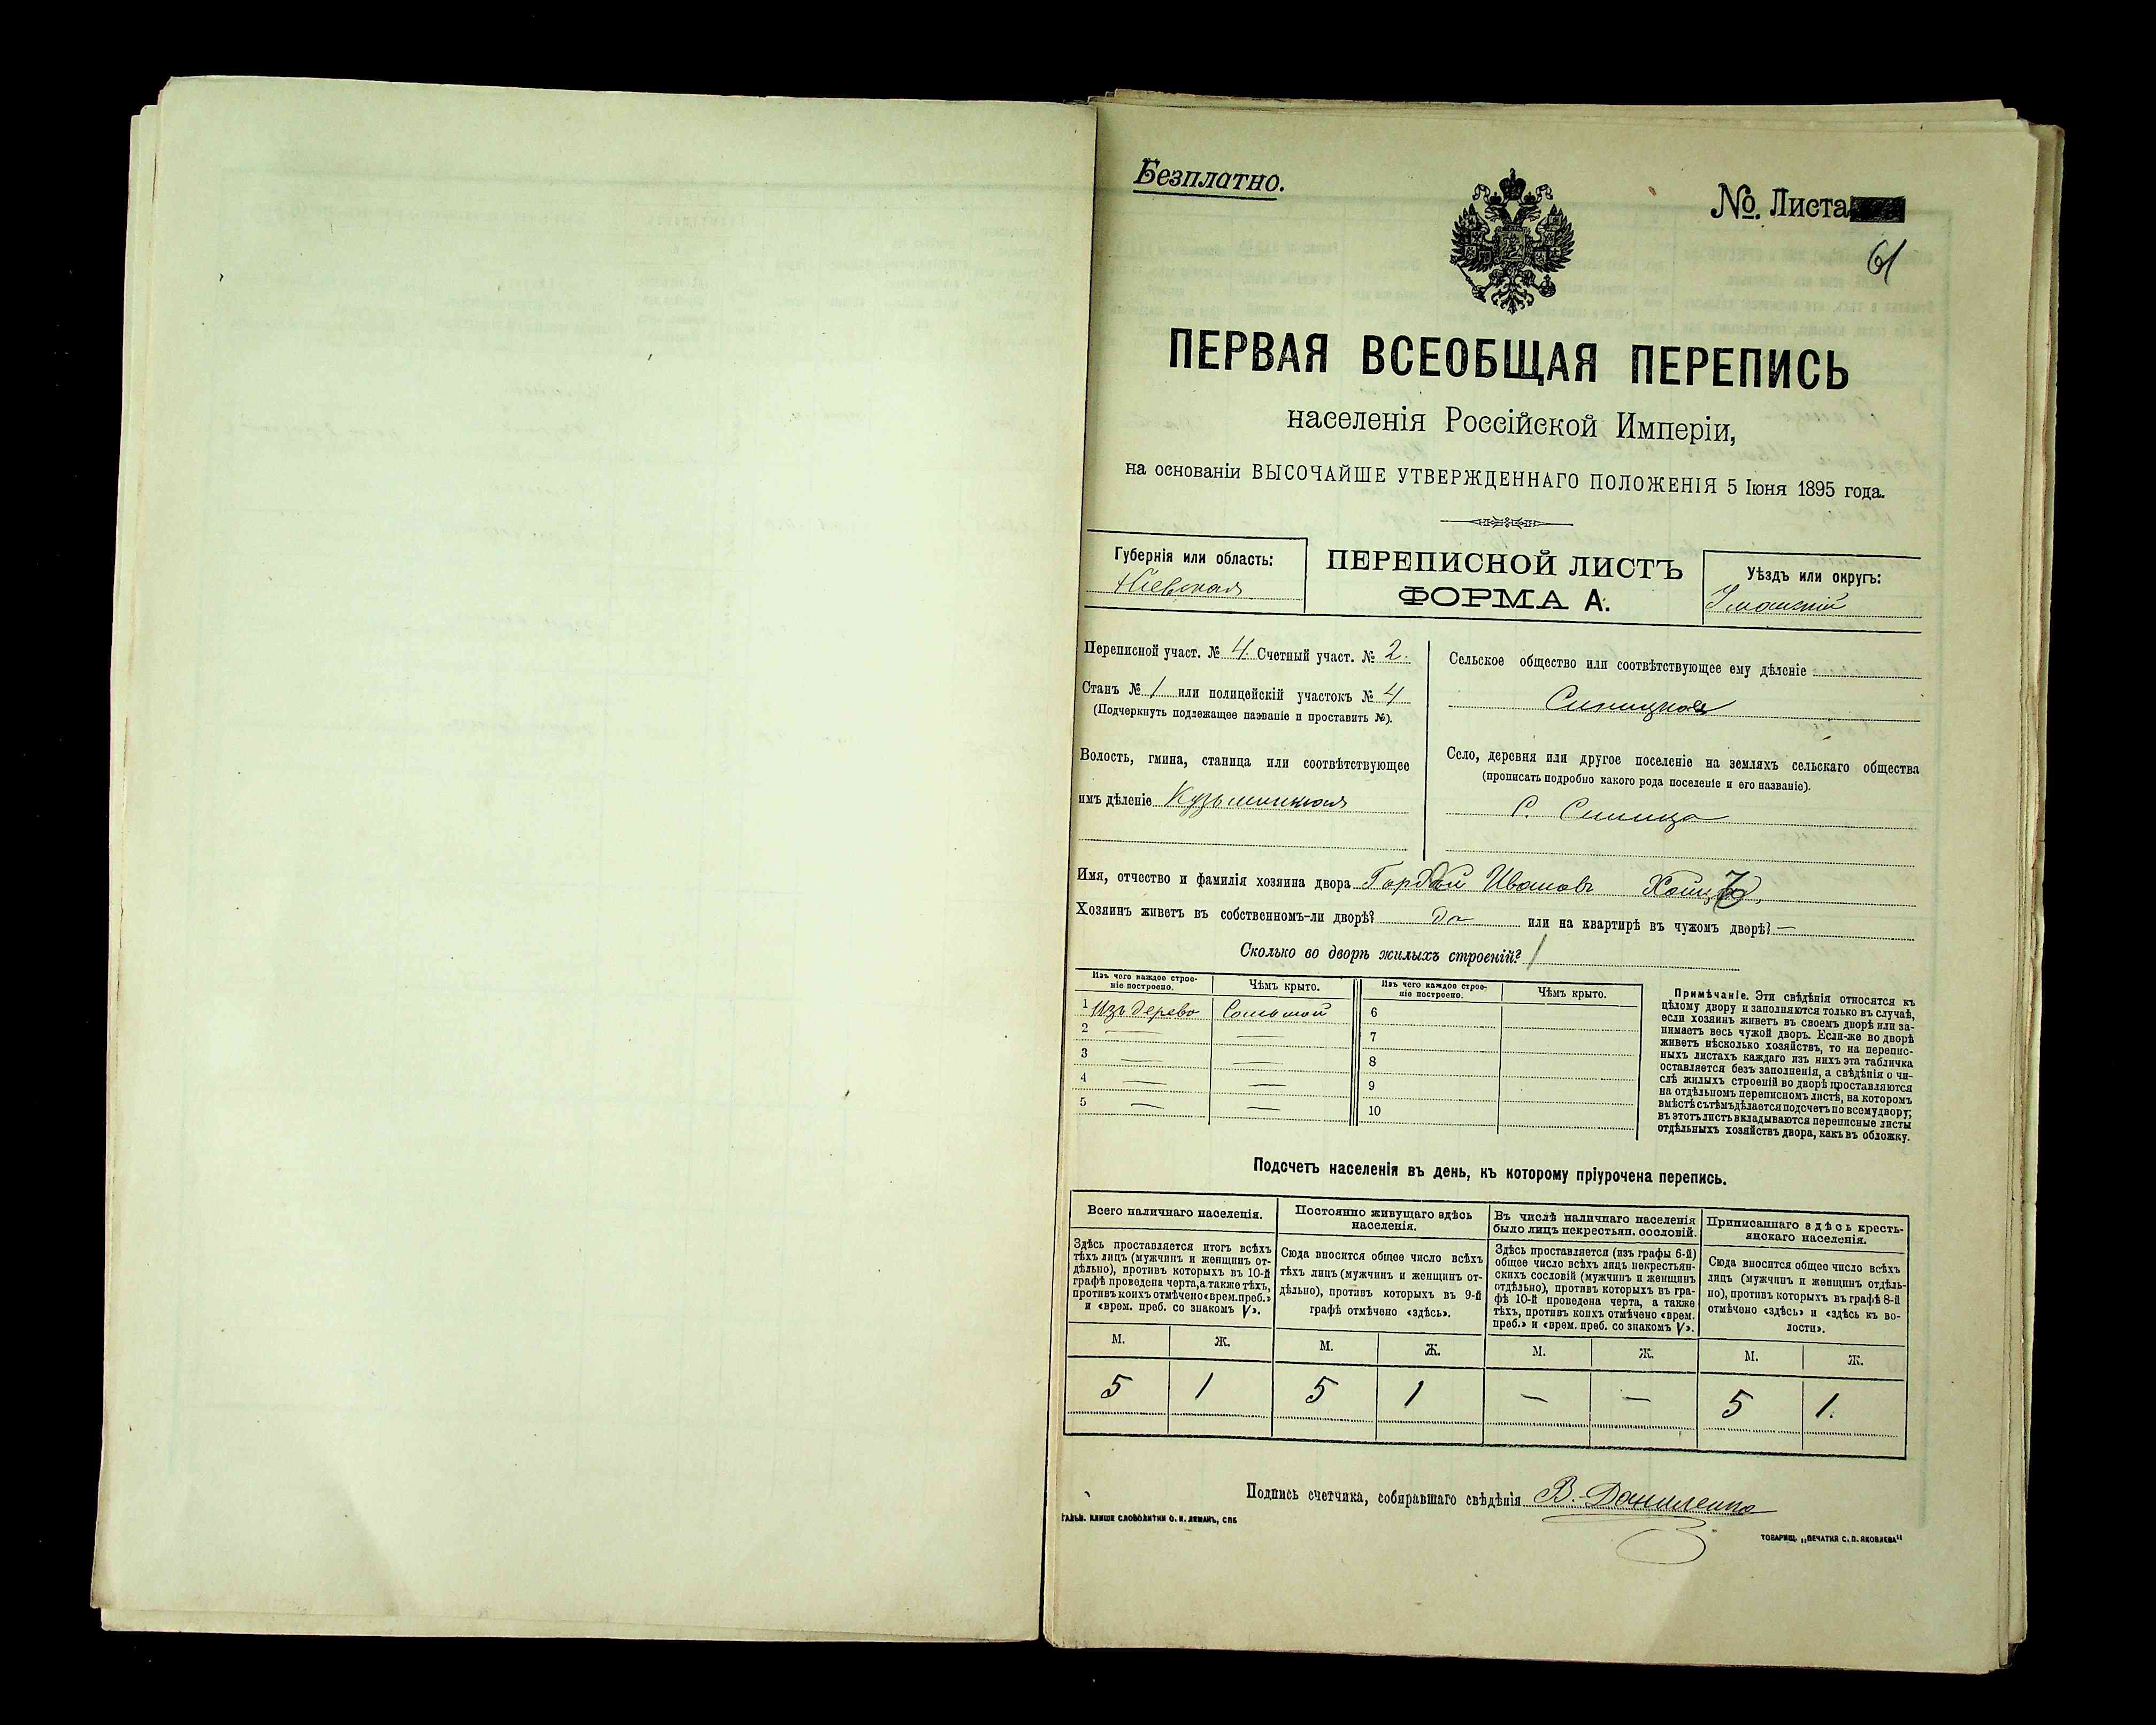 Безплатно.
№. Листа
61
ПЕРВАЯ ВСЕОБЩАЯ ПЕРЕПИСЬ
населенія Россійской Имперіи,
на основаніи ВЫСОЧАЙШЕ УТВЕРЖДЕННАГО ПОЛОЖЕНІЯ 5 Іюня 1895 года.
Губернія или область:
Кіевская
ПЕРЕПИСНОЙ ЛИСТЪ
ФОРМА А.
Уѣздъ или округъ:
Уманскій
Переписной участ. № 4. Счетный участ. № 2.
Станъ № 1 или полицейскій участокъ № 4
(Подчеркнуть подлежащее названіе и проставить №).
Волость, гмина, станица или соотвѣтствующее
имъ дѣленіе Кузьминская
Сельское общество или соотвѣтствующее ему дѣленіе
Синицкое
Село, деревня или другое поселеніе на земляхъ сельскаго общества
(прописать подробно какого рода поселеніе и его названіе).
С. Синица
Имя, отчество и фамилія хозяина двора Гордѣй Ивановъ
Хозяинъ живетъ въ собственномъ-ли дворѣ? да или на квартирѣ въ чужомъ дворѣ? —
Сколько во дворѣ жилыхъ строеній? 1
Изъ чего каждое строе-
ніе построено.
Чѣмъ крыто.
Изъ чего каждое строе-
ніе построено.
Чѣмъ крыто.
1 Изъ дерева Соломой 6
2 — — 7
3 — — 8
4 — — 9
5 — — 10
Примѣчаніе. Эти свѣдѣнія относятся къ
цѣлому двору и заполняются только въ случаѣ,
если хозяинъ живетъ въ своемъ дворѣ или за-
нимаетъ весь чужой дворъ. Если-же во дворѣ
живетъ нѣсколько хозяйствъ, то на перепис-
ныхъ листахъ каждаго изъ нихъ эта табличка
оставляется безъ заполненія, а свѣдѣнія о чи-
слѣ жилыхъ строеній во дворѣ проставляются
на отдѣльномъ переписномъ листѣ, на которомъ
вмѣстѣ съ тѣмъ дѣлается подсчетъ по всему двору;
въ этотъ листъ вкладываются переписные листы
отдѣльныхъ хозяйствъ двора, какъ въ обложку.
Подсчетъ населенія въ день, къ которому пріурочена перепись.
Всего наличнаго населенія.
Здѣсь проставляется итогъ всѣхъ
тѣхъ лицъ (мужчинъ и женщинъ от-
дѣльно), противъ которыхъ въ 10-й
графѣ проведена черта, а также тѣхъ,
противъ коихъ отмѣчено «врем. преб.»
и «врем. преб. со знакомъ V».
М. Ж.
5 1
Постоянно живущаго здѣсь
населенія.
Сюда вносится общее число всѣхъ
тѣхъ лицъ (мужчинъ и женщинъ от-
дѣльно), противъ которыхъ въ 9-й
графѣ отмѣчено «здѣсь».
М. Ж.
5 1
Въ числѣ наличнаго населенія
было лицъ некрестьян. сословій.
Здѣсь проставляется (изъ графы 6-й)
общее число всѣхъ лицъ некрестьян-
скихъ сословій (мужчинъ и женщинъ
отдѣльно), противъ которыхъ въ гра-
фѣ 10-й проведена черта, а также
тѣхъ, противъ коихъ отмѣчено «врем.
преб.» и «врем. преб. со знакомъ V».
М. Ж.
— —
Приписаннаго здѣсь кресть-
янскаго населенія.
Сюда вносится общее число всѣхъ
лицъ (мужчинъ и женщинъ отдѣль-
но), противъ которыхъ въ графѣ 8-й
отмѣчено «здѣсь» и «здѣсь къ во-
лости».
М. Ж.
5 1.
Подпись счетчика, собиравшаго свѣдѣнія В. Даниленко
ГАЛЬВ. КЛИШЕ СЛОВОЛИТНИ О. И. ЛЕМАНЪ, СПБ
ТОВАРИЩ. „ПЕЧАТНЯ С. П. ЯКОВЛЕВА"